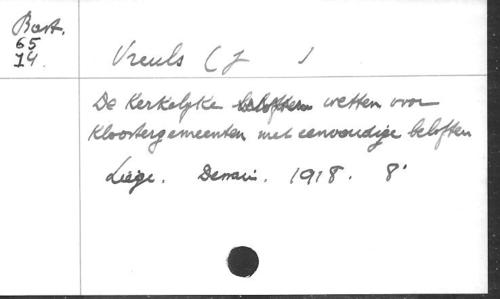 Bast.
65
14.
Vreuls (J )
De Kerkelyke beloften wetten voor
Kloostergemeenten met eenvoudige beloften
Liège. Dessain. 1918. 8°